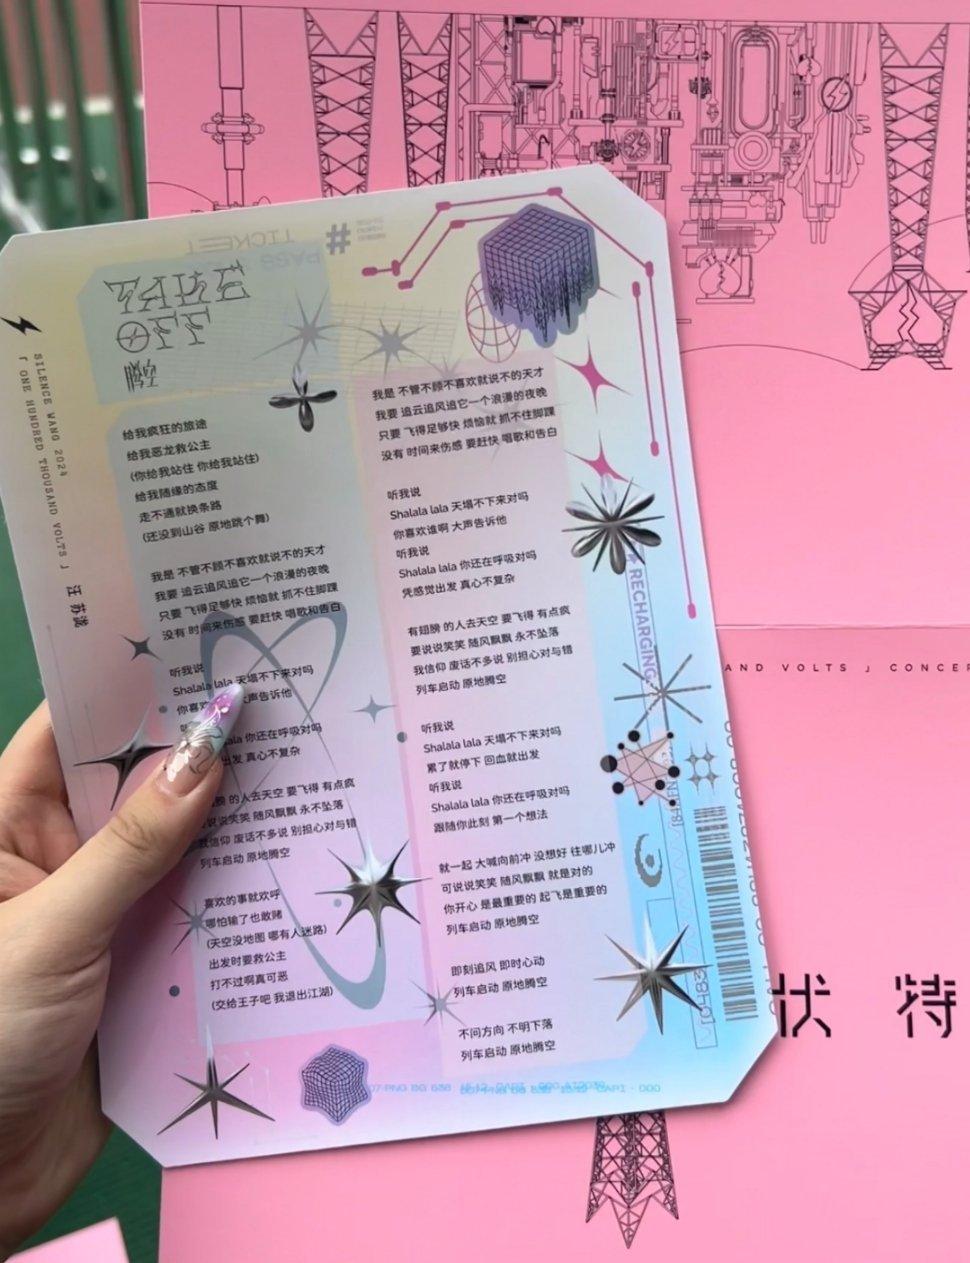 TAKE
OFF
腾空
SILENCE WANG 2024
「 ONE HUNDRED THOUSAND VOLTS 」
汪苏泷
PASS
TICKET
#
给我疯狂的旅途
给我恶龙救公主
(你给我站住 你给我站住)
给我随缘的态度
走不通就换条路
(还没到山谷 原地跳个舞)
我是 不管不顾不喜欢就说不的天才
我要 追云追风追它一个浪漫的夜晚
只要 飞得足够快 烦恼就 抓不住脚踝
没有 时间来伤感 要赶快 唱歌和告白
听我说
Shalala lala 天塌不下来对吗
你喜欢 大声告诉他
lala 你还在呼吸对吗
出发 真心不复杂
的人去天空 要飞得 有点疯
说说笑笑 随风飘飘 永不坠落
我信仰 废话不多说 别担心对与错
列车启动 原地腾空
喜欢的事就欢呼
哪怕输了也敢赌
(天空没地图 哪有人迷路)
出发时要救公主
打不过啊真可恶
(交给王子吧 我退出江湖)
我是 不管不顾不喜欢就说不的天才
我要 追云追风追它一个浪漫的夜晚
只要 飞得足够快 烦恼就 抓不住脚踝
没有 时间来伤感 要赶快 唱歌和告白
听我说
Shalala lala 天塌不下来对吗
你喜欢谁啊 大声告诉他
听我说
Shalala lala 你还在呼吸对吗
凭感觉出发 真心不复杂
有翅膀 的人去天空 要飞得 有点疯
要说说笑笑 随风飘飘 永不坠落
我信仰 废话不多说 别担心对与错
列车启动 原地腾空
听我说
Shalala lala 天塌不下来对吗
累了就停下 回血就出发
听我说
Shalala lala 你还在呼吸对吗
跟随你此刻 第一个想法
就一起 大喊向前冲 没想好 往哪儿冲
可说说笑笑 随风飘飘 就是对的
你开心 是最重要的 起飞是重要的
列车启动 原地腾空
即刻追风 即时心动
列车启动 原地腾空
不问方向 不明下落
列车启动 原地腾空
RECHARGING
AND VOLTS 」 CONCEP
伏特